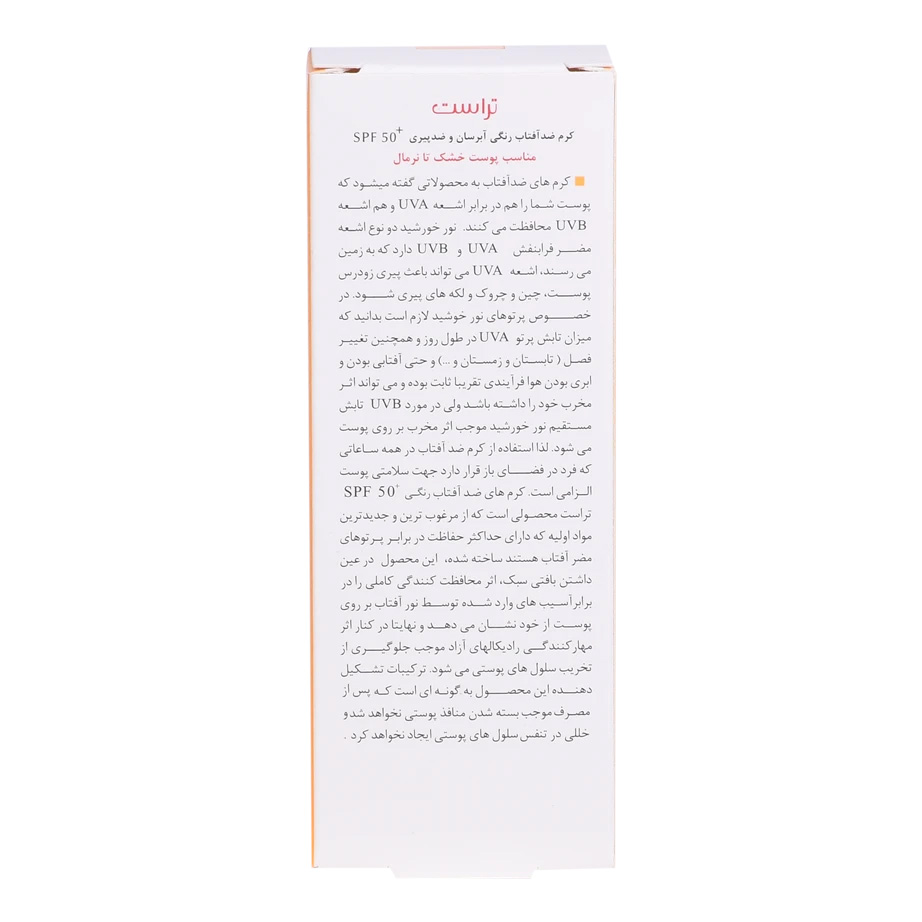 تراست
کرم ضدآفتاب رنگی آبرسان و ضدپیری SPF 50+
مناسب پوست خشک تا نرمال
کرم های ضدآفتاب به محصولاتی گفته میشود که
پوست شما را هم در برابر اشعه UVA و هم اشعه
UVB محافظت می کنند. نور خورشید دو نوع اشعه
مضر فرابنفش UVA و UVB دارد که به زمین
می رسند، اشعه UVA می تواند باعث پیری زودرس
پوست، چین و چروک و لکه های پیری شود. در
خصوص پرتوهای نور خوشید لازم است بدانید که
میزان تابش پرتو UVA در طول روز و همچنین تغییر
فصل ( تابستان و زمستان و ...) و حتی آفتابی بودن و
ابری بودن هوا فرآیندی تقریبا ثابت بوده و می تواند اثر
مخرب خود را داشته باشد ولی در مورد UVB تابش
مستقیم نور خورشید موجب اثر مخرب بر روی پوست
می شود. لذا استفاده از کرم ضد آفتاب در همه ساعاتی
که فرد در فضای باز قرار دارد جهت سلامتی پوست
الزامی است. کرم های ضد آفتاب رنگی SPF 50+
تراست محصولی است که از مرغوب ترین و جدیدترین
مواد اولیه که دارای حداکثر حفاظت در برابر پرتوهای
مضر آفتاب هستند ساخته شده، این محصول در عین
داشتن بافتی سبک، اثر محافظت کنندگی کاملی را در
برابرآسیب های وارد شده توسط نور آفتاب بر روی
پوست از خود نشان می دهد و نهایتا در کنار اثر
مهارکنندگی رادیکالهای آزاد موجب جلوگیری از
تخریب سلول های پوستی می شود. ترکیبات تشکیل
دهنده این محصول به گونه ای است که پس از
مصرف موجب بسته شدن منافذ پوستی نخواهد شد و
خللی در تنفس سلول های پوستی ایجاد نخواهد کرد .